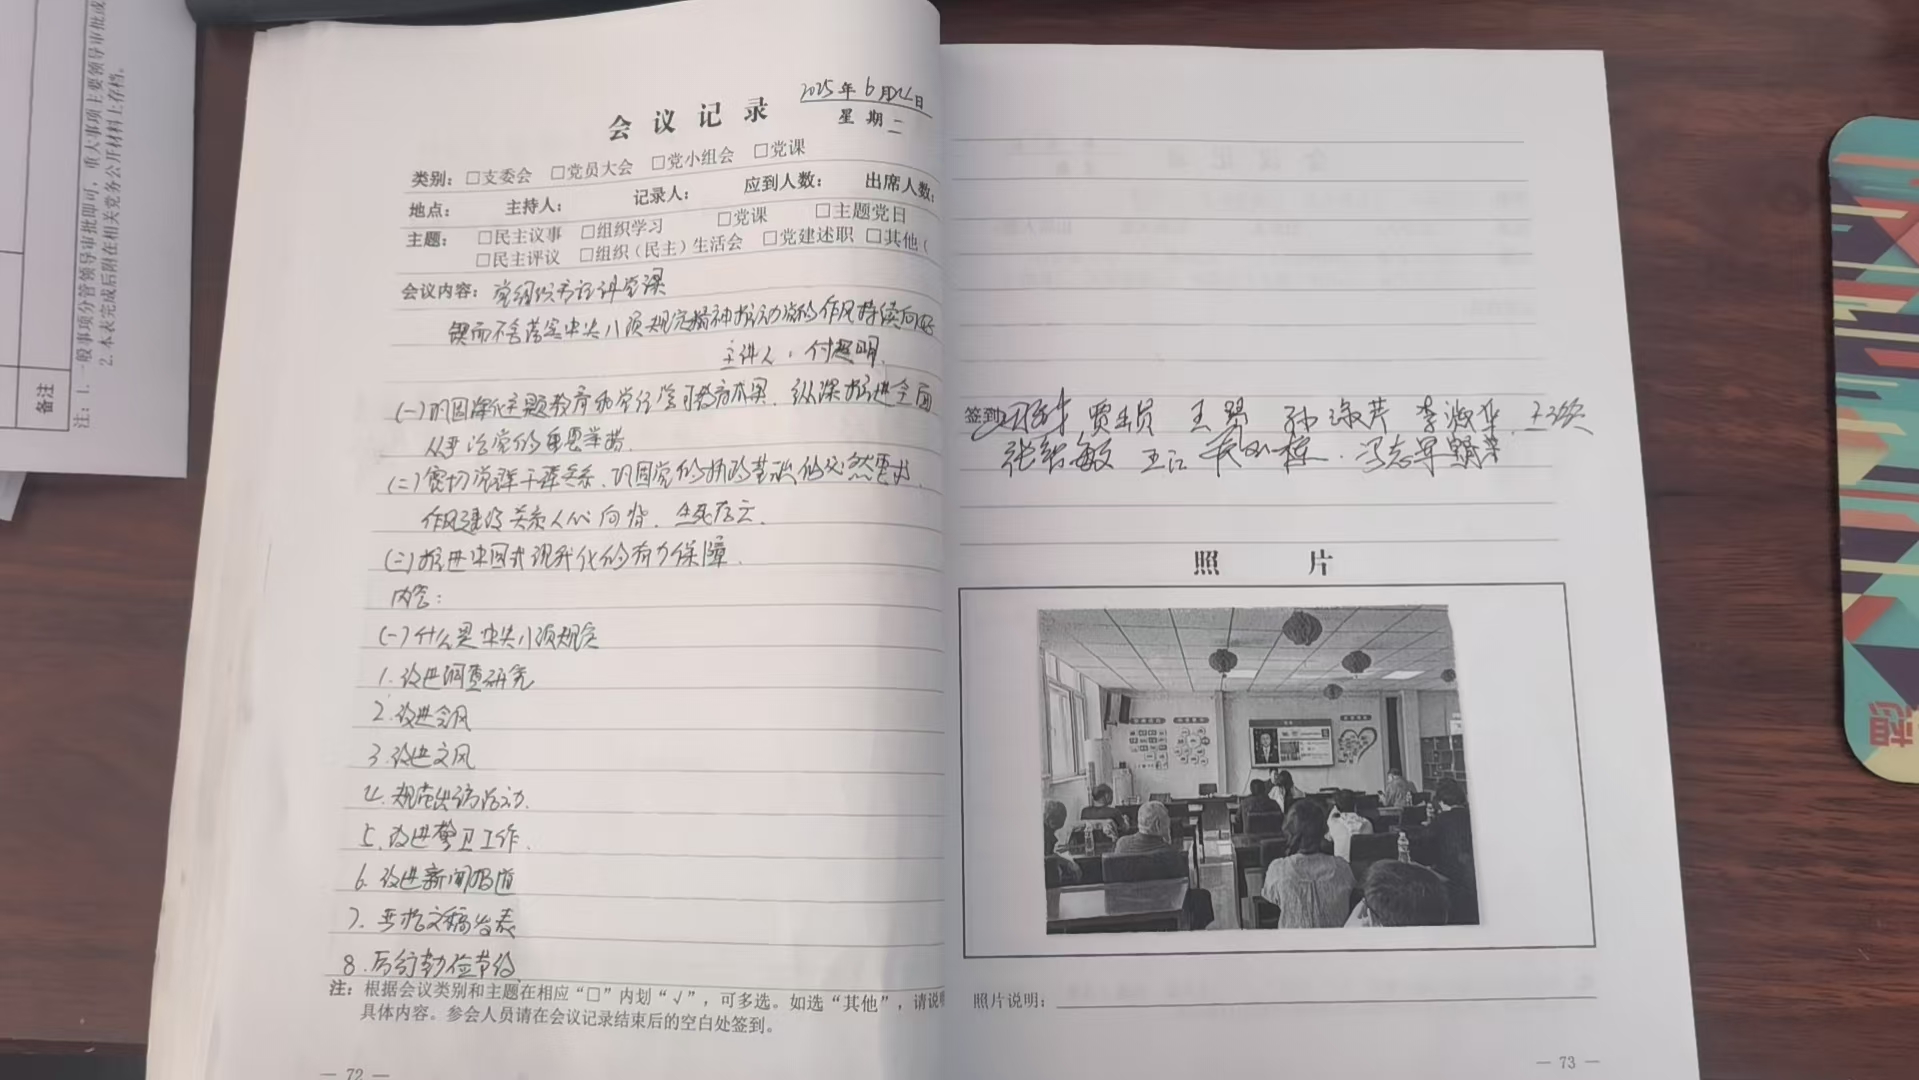 注：1. 一般事项分管领导审批即可，重大事项主要领导审批或
2. 本表完成后附在相关党务公开材料上存档。
备注
2025年6月24日
会议记录
星期二
类别：□支委会 □党员大会 □党小组会 □党课
地点： 主持人： 记录人： 应到人数： 出席人数：
主题： □民主议事 □组织学习 □党课 □主题党日
□民主评议 □组织（民主）生活会 □党建述职 □其他（
会议内容：党组织书记讲党课
锲而不舍落实中央八项规定精神推动党的作风持续向好
主讲人：付
（一）巩固深化主题教育和党纪学习教育成果、纵深推进全面
从严治党的重要举措.
（二）密切党群干群关系、巩固党的执政基础的必然要求.
作风建设关系人心向背、生死存亡.
（三）推进中国式现代化的有力保障.
内容：
（一）什么是中央八项规定
1.改进调查研究
2.改进会风
3.改进文风
4.规范出访活动.
5.改进警卫工作.
6.改进新闻报道
7.严格文稿发表
8.厉行勤俭节约
注：根据会议类别和主题在相应“□”内划“√”，可多选。如选“其他”，请说明
具体内容。参会人员请在会议记录结束后的空白处签到。
— 72 —
签到： 孙淑芹 李淑华
王江 冯志军
照 片
照片说明：
— 73 —
想